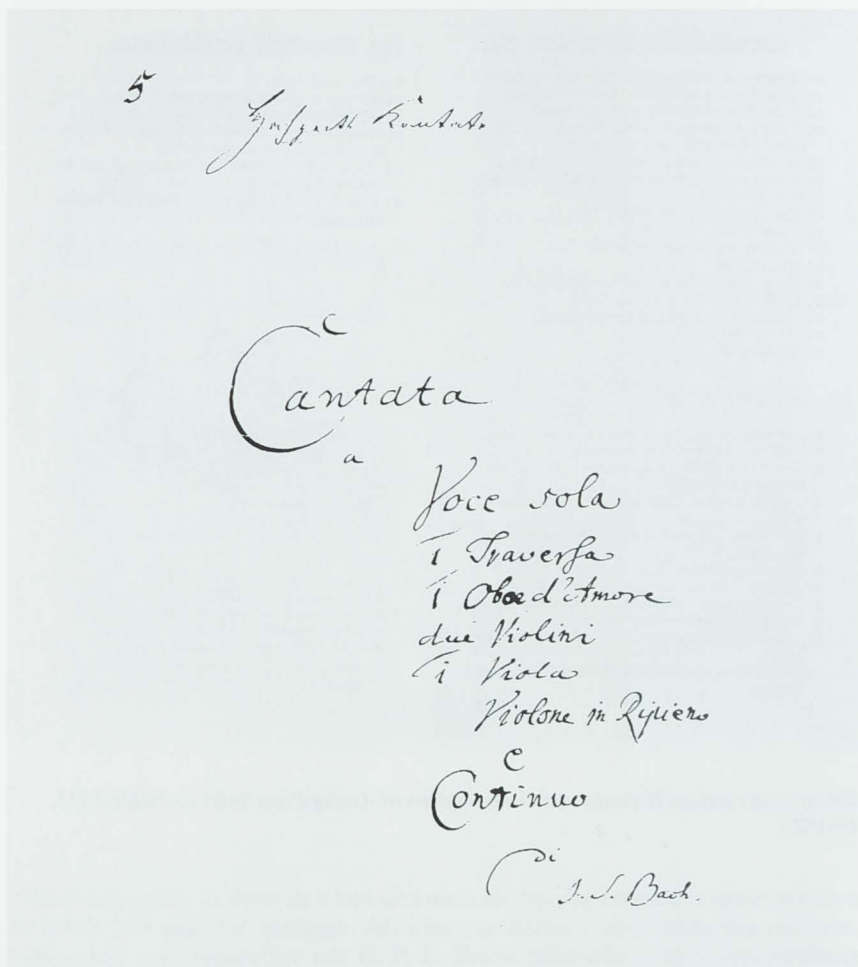 5
Hochzeits Kantate
Cantata
a
Voce sola
1 Traversa
1 Oboe d'Amore
due Violini
1 Viola
Violone in Ripieno
e
Continuo
di
J. S. Bach.